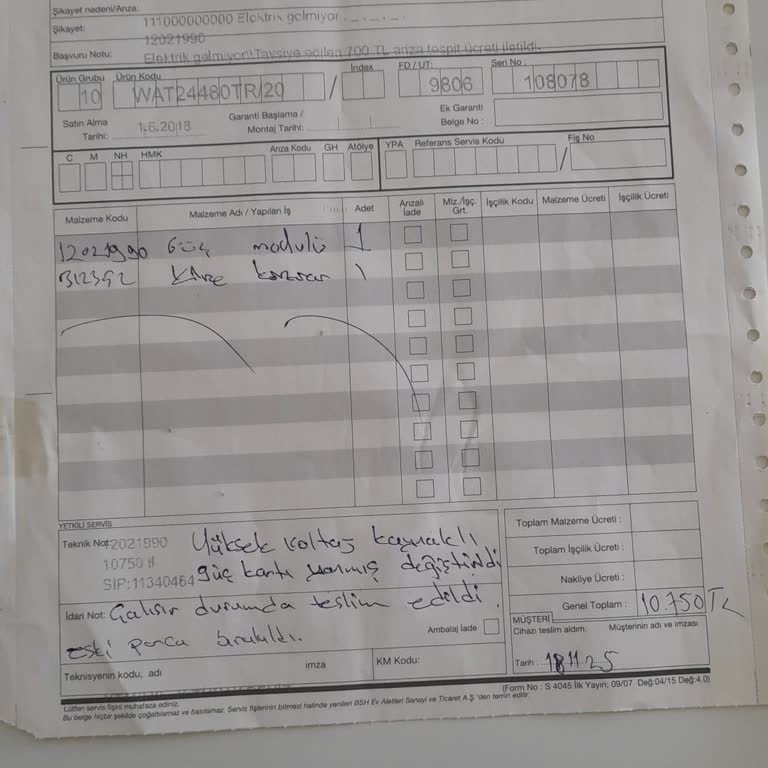 Şikayet nedeni/Arıza:
Şikayet: 111000000000 Elektrik gelmiyor
12021990
Başvuru Notu: Elektrik gelmiyor\Tavsiye edilen 700 TL arıza tespit ücreti iletildi.
Ürün Grubu Ürün Kodu Index FD / UT: Seri No :
10 WAT24480TR/20 / 9806 108078
Satın Alma Tarihi: 1.6.2018 Garanti Başlama / Montaj Tarihi: Ek Garanti Belge No :
C M NH HMK Arıza Kodu GH Atölye YPA Referans Servis Kodu / Fiş No
Malzeme Kodu Malzeme Adı / Yapılan İş Adet Arızalı İade Mlz./İşç. Grt. İşçilik Kodu Malzeme Ücreti İşçilik Ücreti
12021990 Güç modülü 1
B12392 1
YETKİLİ SERVİS
Teknik Not: 12021990 Yüksek voltaj kaynaklı
10750 tl
SİP:11340464 güç kartı yanmış değiştirildi
İdari Not: Çalışır durumda teslim edildi.
eski parça bırakıldı.
Ambalaj İade
Teknisyenin kodu, adı imza KM Kodu:
Toplam Malzeme Ücreti :
Toplam İşçilik Ücreti :
Nakliye Ücreti :
Genel Toplam : 10.750 TL
MÜŞTERİ
Cihazı teslim aldım. Müşterinin adı ve imzası
Tarih : 18.11.25
(Form No : S 4045 İlk Yayın; 09/07 Değ:04/15 Değ:4.0)
Lütfen servis fişini muhafaza ediniz.
Bu belge hiçbir şekilde çoğaltılamaz ve basılamaz. Servis fişlerinin bitmesi halinde yenileri BSH Ev Aletleri Sanayi ve Ticaret A.Ş.'den temin edilir.